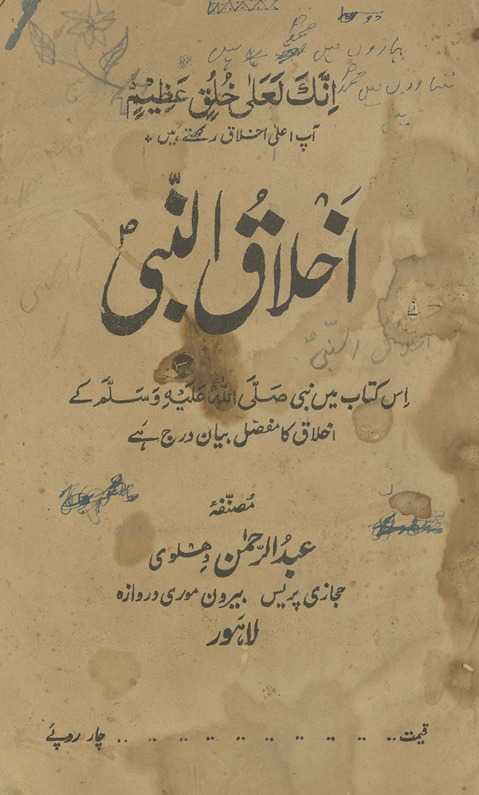 اِنَّكَ لَعَلىٰ خُلُقٍ عَظِيْمٍ
آپ اعلیٰ اخلاق رکھتے ہیں
اَخلاقُ النَّبی ؐ
اِس کتاب میں نبی صَلَّی اللهُ عَلَيْهِ وَسَلَّم کے
اخلاق کا مفصّل بیان درج ہَے
مُصنّفہٗ
عبدُالرّحمٰن دِہلوی
حجازی پریس بیرون موری دروازہ
لاہَور
قیمت .. .. .. .. .. .. .. .. .. .. چار روپئے